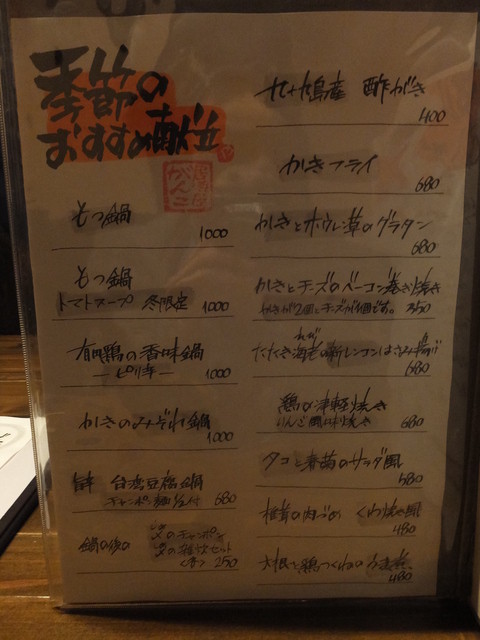 季節の
おすすめ献立
居酒屋
がんこ
もつ鍋
1000
もつ鍋
トマトスープ 冬限定 1000
有田鶏の香味鍋
ーピリ辛ー 1000
かきのみぞれ鍋
1000
台湾豆腐鍋
チャンポン麺1/2付 680
鍋の後の
〆のチャンポン
〆の雑炊セット
250
九十九島産 酢がき
400
かきフライ
680
かきとホウレン草のグラタン
680
かきとチーズのベーコン巻き焼き
かきが2個とチーズが1個です。 350
たたき海老の新レンコンはさみ揚げ
680
鶏の津軽焼き
りんご風味焼き 680
タコと春菊のサラダ風
580
椎茸の肉づめ くわ焼き風
480
大根と鶏つくねの
480